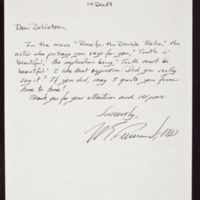 14 Dec 89
Dear Dr. Watson,
In the movie "Race for the Double Helix," the
actor who portrays you says for you, "Truth is
beautiful", the implication being, "Truth must be
beautiful." I like that expression. Did you really
say it? If you did, may I quote you from
time to time?
Thank you for your attention and response.
Sincerely,
MD